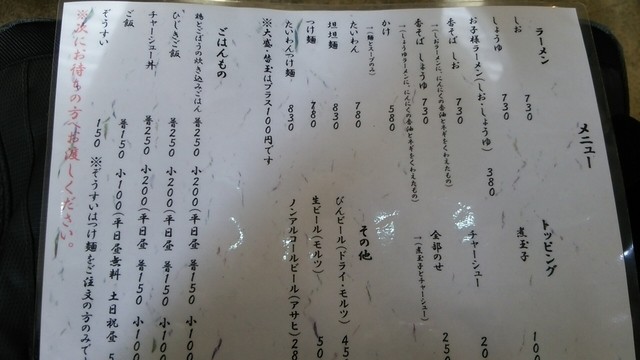 メニュー
ラーメン
しお 730
しょうゆ 730
お子様ラーメン(しお・しょうゆ) 380
香そば しお 730
→(しおラーメンに、にんにくの香油とネギをくわえたもの)
香そば しょうゆ 730
→(しょうゆラーメンに、にんにくの香油とネギをくわえたもの)
かけ 580
→(麺とスープのみ)
たいわん 780
坦坦麺 830
つけ麺 780
たいわんつけ麺 830
※大盛、替玉はプラス100円です
トッピング
煮玉子 10
チャーシュー 20
全部のせ 25
→(煮玉子とチャーシュー)
その他
びんビール(ドライ・モルツ) 45
生ビール(モルツ) 50
ノンアルコールビール(アサヒ) 28
ごはんもの
鶏とごぼうの炊き込みごはん 普250 小200(平日昼 普150 小100
ひじきご飯 普250 小200(平日昼 普150 小100
チャーシュー丼 普250 小200(平日昼 普150 小10
ご飯 普150 小100(平日昼無料 土日祝昼 5
ぞうすい 150 ※ぞうすいはつけ麺をご注文の方のみで
※次にお待ちの方へお渡しください。